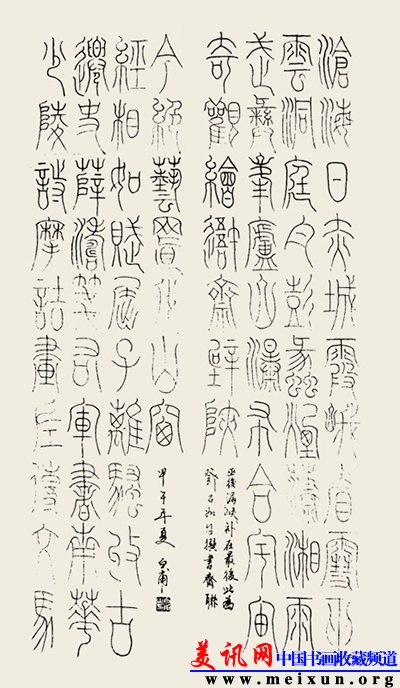 滄海日赤城霞峨眉雪巫
雲洞庭月彭蠡煙瀟湘雨
武彝峯廬山瀑布合宇宙
奇觀繪吾齋壁峽
巫後漏峽補在最後此為
鄧石如自撰書齋聯
少陵詩摩詰畫左傳文馬
遷史薛濤箋右軍書南華
經相如賦屈子離騷收古
今絕藝置我山窗
甲午年夏 白甫
美讯网 中国书画收藏频道
www.meixun.org